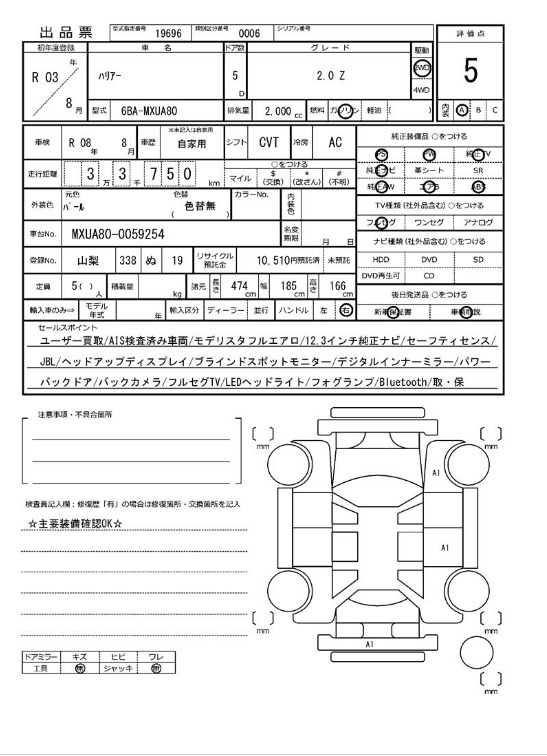 出品票 型式指定番号 19696 類別区分番号 0006 シリアル番号
評価点
初年度登録 車名 ドア数 グレード 駆動
R 03 年 8 月 ハリアー 5 D 2.0 Z 2WD 4WD
5
型式 6BA-MXUA80 排気量 2,000 cc 燃料 ガソリン 軽油 ( ) 内装 A B C
車検 R 08 年 8 月 車歴 ※未記入は自家用 自家用 シフト CVT 冷房 AC
純正装備品 ○をつける
PS PW 純正TV
走行距離 3 万 3 千 7 5 0 km ○をつける マイル $ (交換) * (改ざん) # (不明)
純正ナビ 革シート SR
純正AW エアB ABS
外装色 元色 パール 色替 色替無 ( ) カラーNo. 内装色
TV種類 (社外品含む) ○をつける
フルセグ ワンセグ アナログ
車台No. MXUA80-0059254 名変期限 月 日
ナビ種類 (社外品含む) ○をつける
登録No. 山梨 338 ぬ 19 リサイクル預託金 10,510円預託済 未預託
HDD DVD SD
DVD再生可 CD
定員 5( ) 人 積載量 kg 諸元 長さ 474 cm 幅 185 cm 高さ 166 cm
後日発送品 ○をつける
輸入車のみ⇒ モデル年式 年 輸入区分 ディーラー 並行 ハンドル 左 右
新車保証書 車輌取説
セールスポイント
ユーザー買取/AIS検査済み車両/モデリスタフルエアロ/12.3インチ純正ナビ/セーフティセンス/
JBL/ヘッドアップディスプレイ/ブラインドスポットモニター/デジタルインナーミラー/パワー
バックドア/バックカメラ/フルセグTV/LEDヘッドライト/フォグランプ/Bluetooth/取・保
注意事項・不具合箇所
検査員記入欄：修復歴「有」の場合は修復箇所・交換箇所を記入
☆主要装備確認OK☆
ドアミラー キズ ヒビ ワレ
工具 無 ジャッキ 無
[ ] mm
[ ] mm
A1
A1
[ ] mm
[ ] mm
A1
[ ] mm